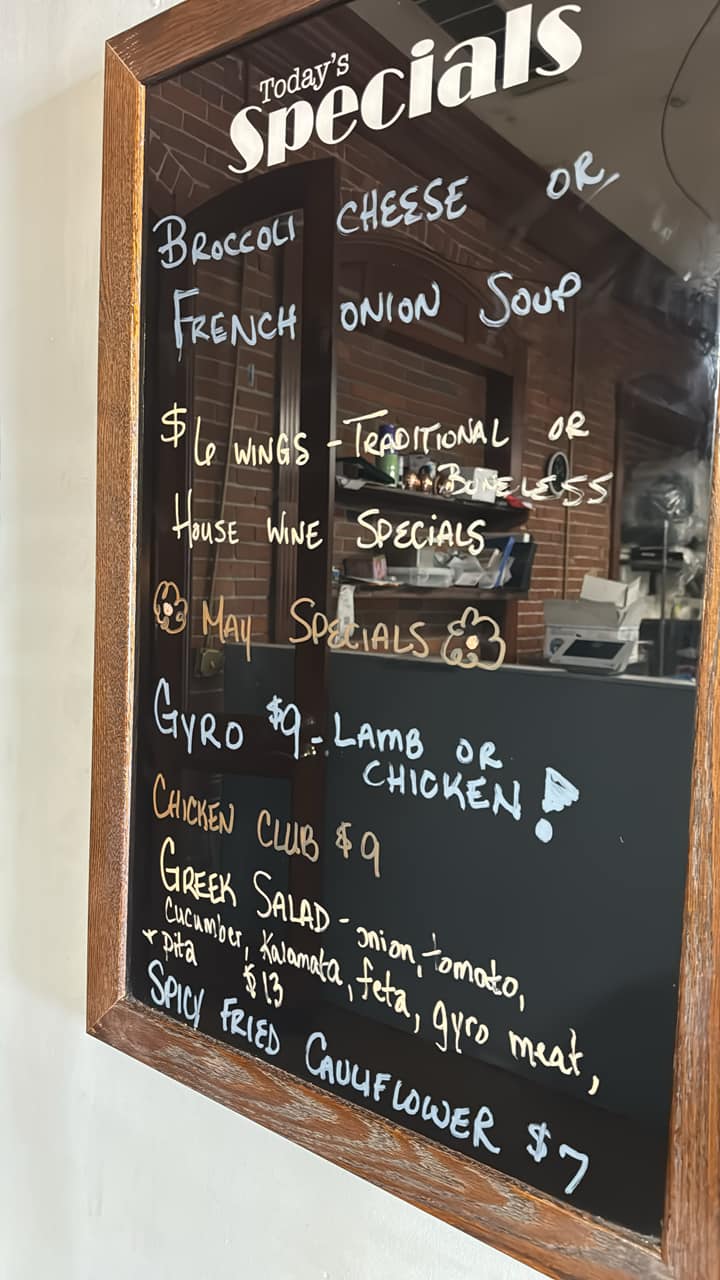 Today's
Specials
BROCCOLI CHEESE OR
FRENCH ONION SOUP
$6 WINGS - TRADITIONAL OR
BONELESS
HOUSE WINE SPECIALS
MAY SPECIALS
GYRO $9 - LAMB OR
CHICKEN!
CHICKEN CLUB $9
GREEK SALAD - onion, tomato,
cucumber, Kalamata, feta, gyro meat,
+ pita $13
SPICY FRIED CAULIFLOWER $7